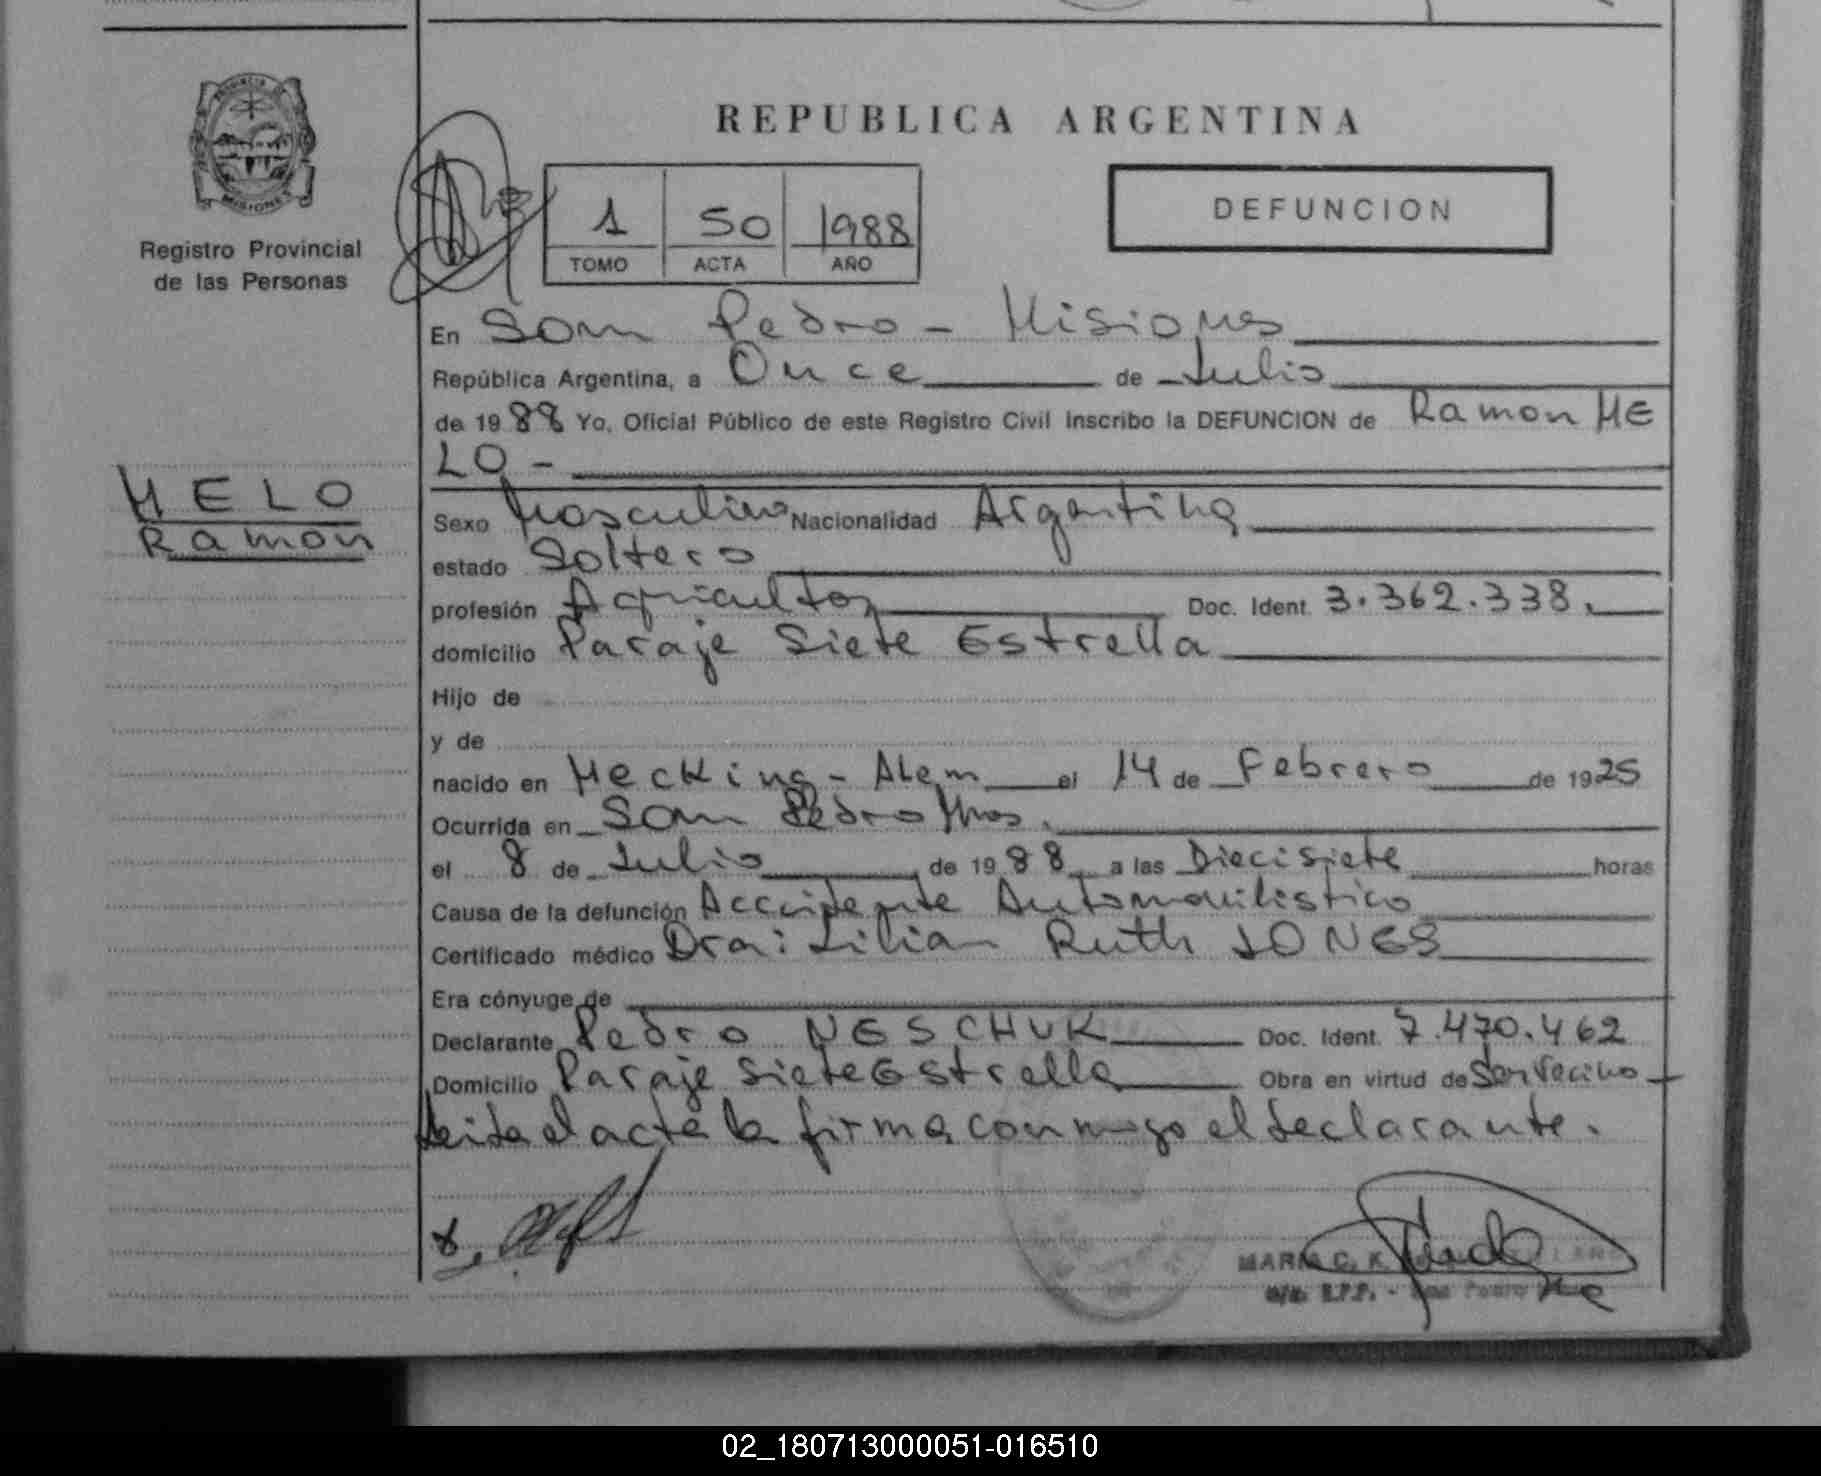 REPUBLICA ARGENTINA
DEFUNCION
1 50 1988
TOMO ACTA AÑO
PROVINCIA DE
MISIONES
Registro Provincial
de las Personas
MELO
Ramon
En San Pedro - Misiones
República Argentina, a Once de Julio
de 1988 Yo, Oficial Público de este Registro Civil Inscribo la DEFUNCION de Ramon ME
LO -
Sexo Masculino Nacionalidad Argentina
estado Soltero
profesión Agricultor Doc. Ident. 3.362.338.
domicilio Paraje Siete Estrella
Hijo de
y de
nacido en Mecking - Alem el 14 de Febrero de 1925
Ocurrida en San Pedro Mnes.
el 8 de Julio de 1988 a las Diecisiete horas
Causa de la defunción Accidente Automovilistico
Certificado médico Dra: Lilian Ruth JONES
Era cónyuge de
Declarante Pedro NESCHUK Doc. Ident. 7.470.462
Domicilio Paraje Siete Estrella Obra en virtud de Ser Vecino -
Leida el acta la firma conmigo el declarante.
MARIA C. K.
R.P.P. - San Pedro
02_180713000051-016510